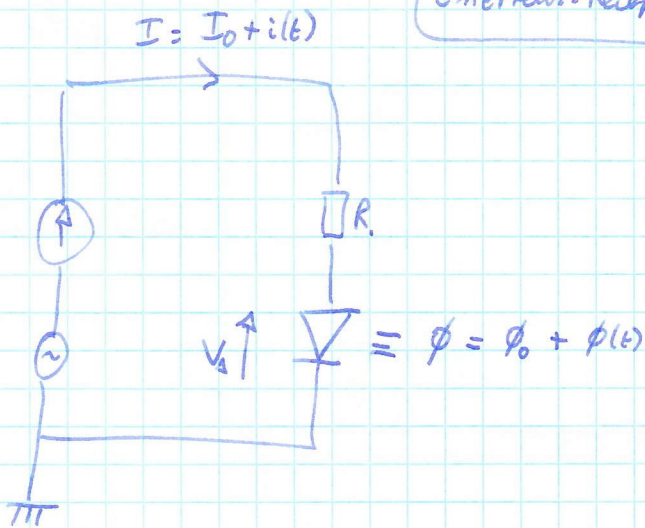 I = I₀ + i(t)
R.
V₁ ≡ ϕ = ϕ₀ + ϕ(t)
~